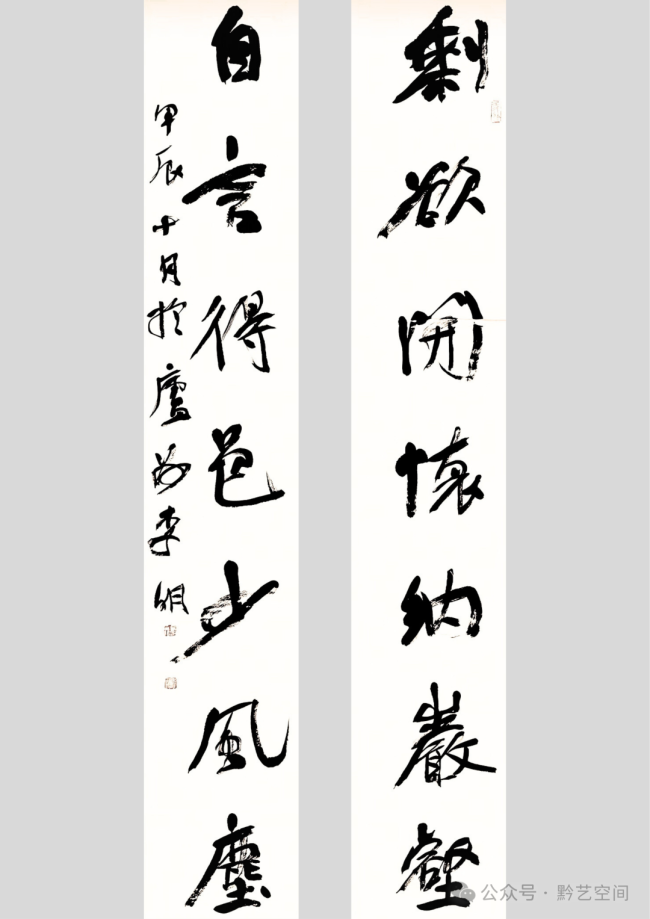 剩欲開懷納巖壑
自言得邑少風塵
甲辰十月於廬州李明
公众号·黔艺空间